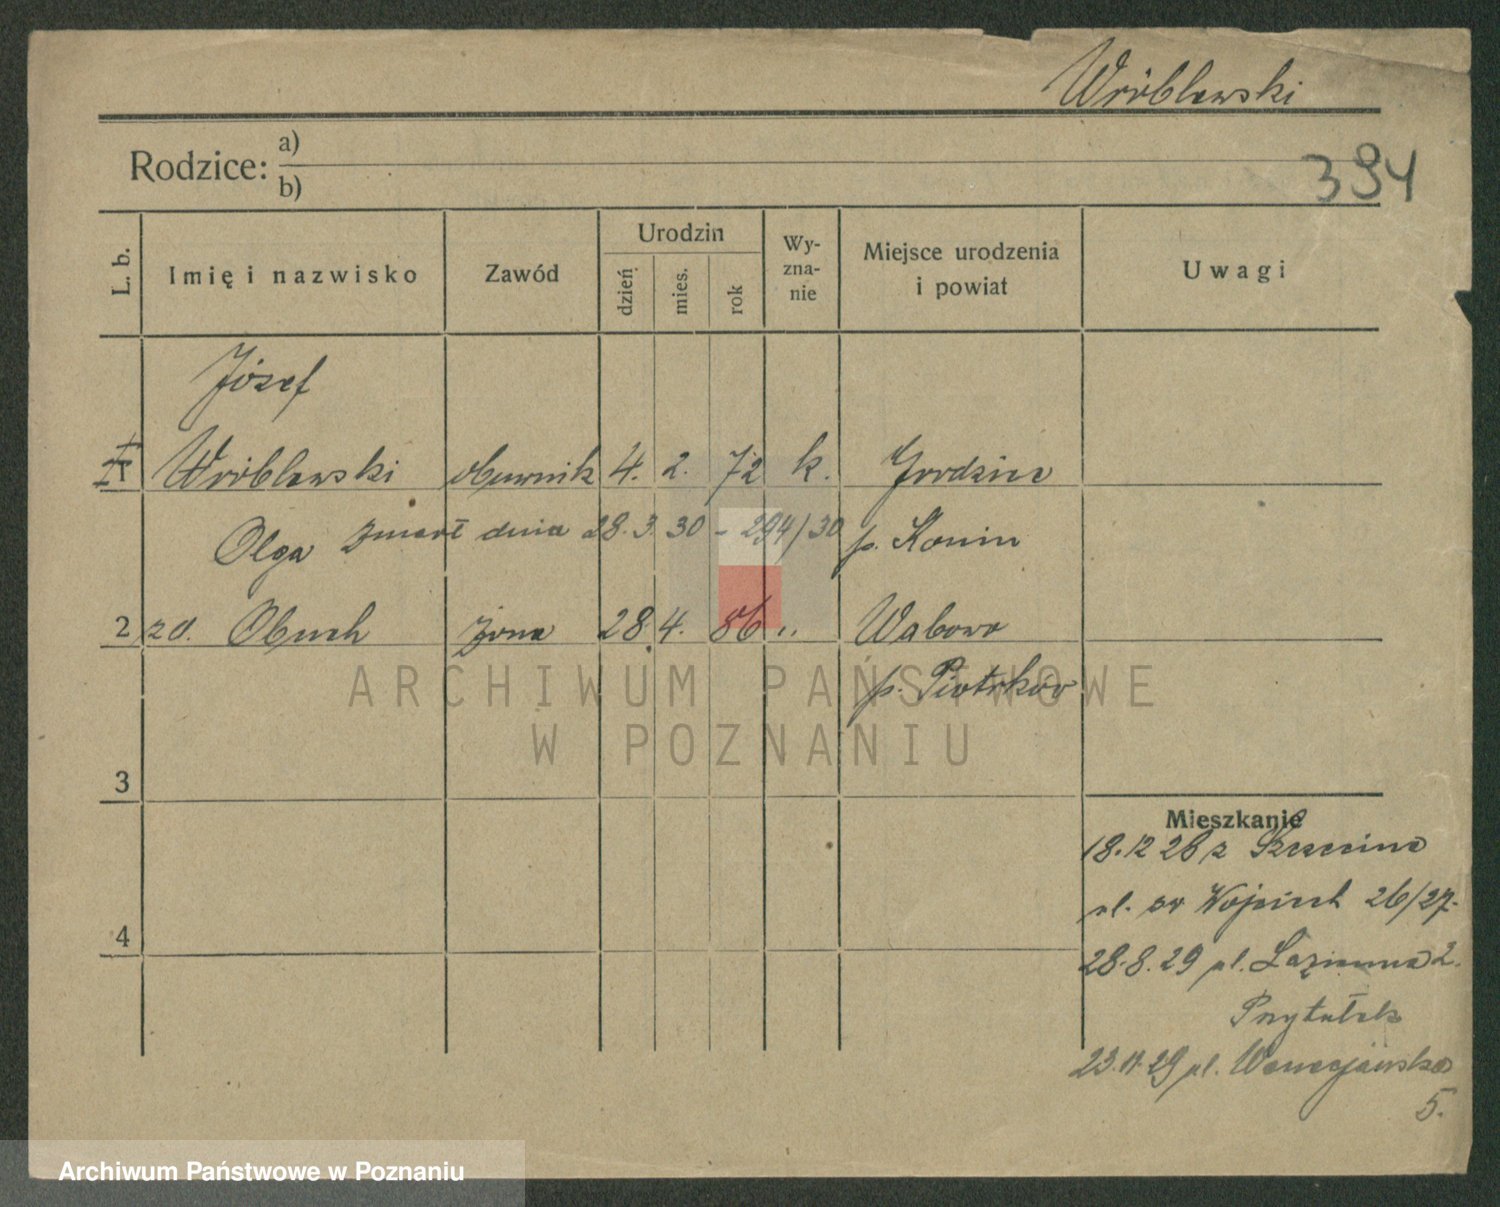 Wróblewski
Rodzice: a)
b)
394
L. b.
Imię i nazwisko
Zawód
Urodzin
dzień
mies.
rok
Wy-
zna-
nie
Miejsce urodzenia
i powiat
Uwagi
Józef
1 Wróblewski obuwnik 4. 2. 72 k. Grodziec
zmarł dnia 28.3.30 - 294/30 p. Konin
Olga
2 zd. Obuch żona 28. 4. 86 " Wabowo
p. Piotrków
ARCHIWUM PAŃSTWOWE
W POZNANIU
3
4
Mieszkanie
18.12 26 z
ul. św Wojciech 26/27.
28.8.29 ul. Łazienna 2.
Przytułek
23.11.29 ul. Wenecjańska
5.
Archiwum Państwowe w Poznaniu